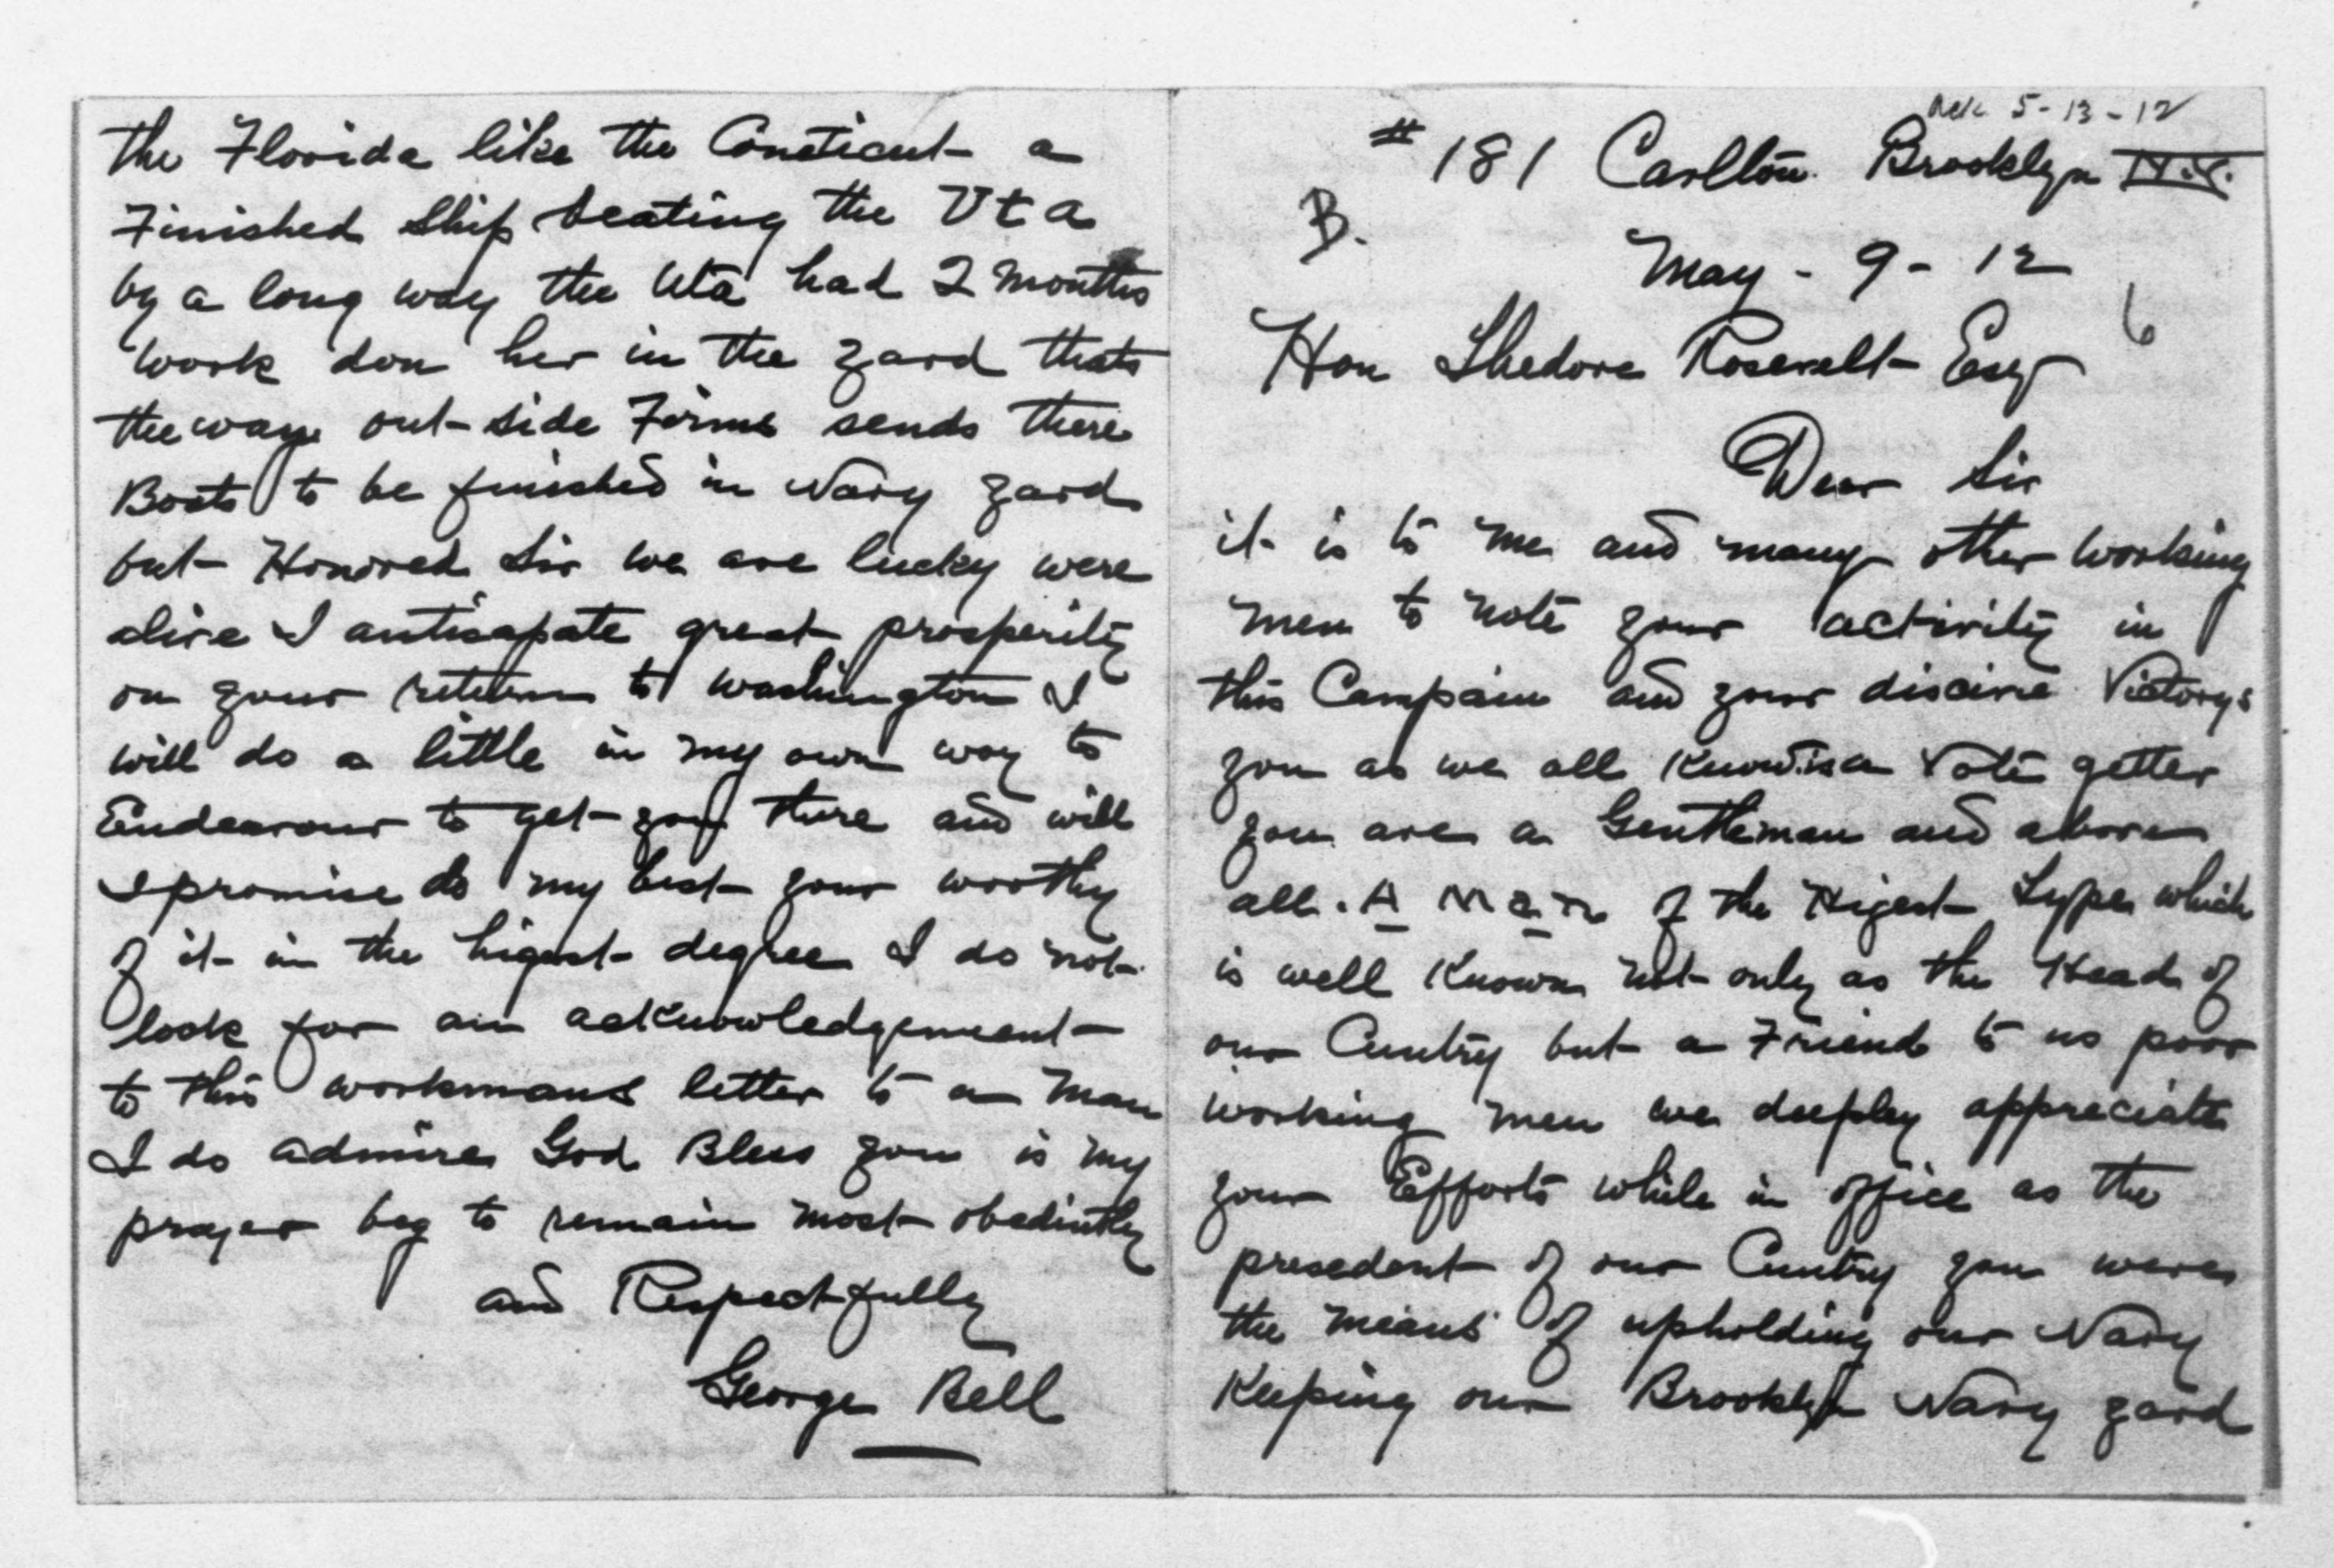 Ack 5-13-12
#181 Carlton Brooklyn N.Y.
B.
May - 9 - 12
6
Hon Thedore Rosevelt Esq
Dear Sir
it is to me and many other working
men to note your activity in
this Campain and your discive Victorys
you as we all Know is a Vote getter
you are a Gentleman and above
all. A Man of the Higest Type which
is well Known not only as the Head of
our Cuntry but a Friend to us poor
working men we deepley appreciate
your Efforts while in office as the
presedent of our Cuntry you were
the means of upholding our Navy
Keeping our Brooklyn Navy yard
the Florida like the Coneticut a
Finished Ship beating the Uta
by a long way the Uta had 2 months
work don her in the yard thats
the way out-side Firms sends there
Boats to be finished in Navy yard
but Honored Sir we are lucky were
alive I antisapate great prosperity
on your return to washington I
will do a little in my own way to
Endeavour to get you there and will
I promise do my best your worthy
of it in the higest degree I do not
look for an acknowledgement
to this workmans letter to a man
I do admire God Bless you is my
prayer beg to remain most obedintly
and Respectfully
George Bell